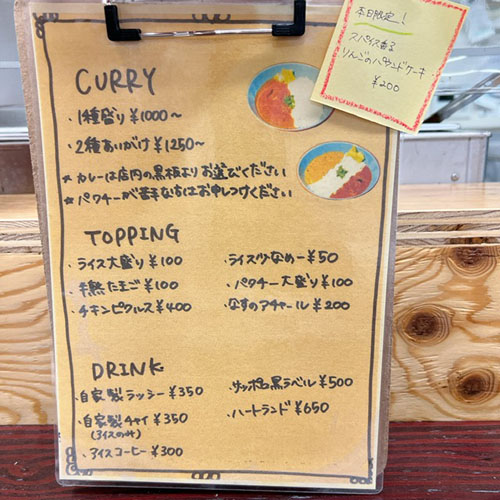 本日限定!
スパイス香る
りんごのパウンドケーキ
¥200
CURRY
・1種盛り ¥1000〜
・2種あいがけ ¥1250〜
★ カレーは店内の黒板よりお選びください
★ パクチーが苦手な方はお申しつけください
TOPPING
・ライス大盛り ¥100
・半熟たまご ¥100
・チキンピクルス ¥400
・ライス少なめ ー¥50
・パクチー大盛り ¥100
・なすのアチャール ¥200
DRINK
・自家製ラッシー ¥350
・自家製チャイ ¥350
(アイスのみ)
・アイスコーヒー ¥300
・サッポロ黒ラベル ¥500
・ハートランド ¥650